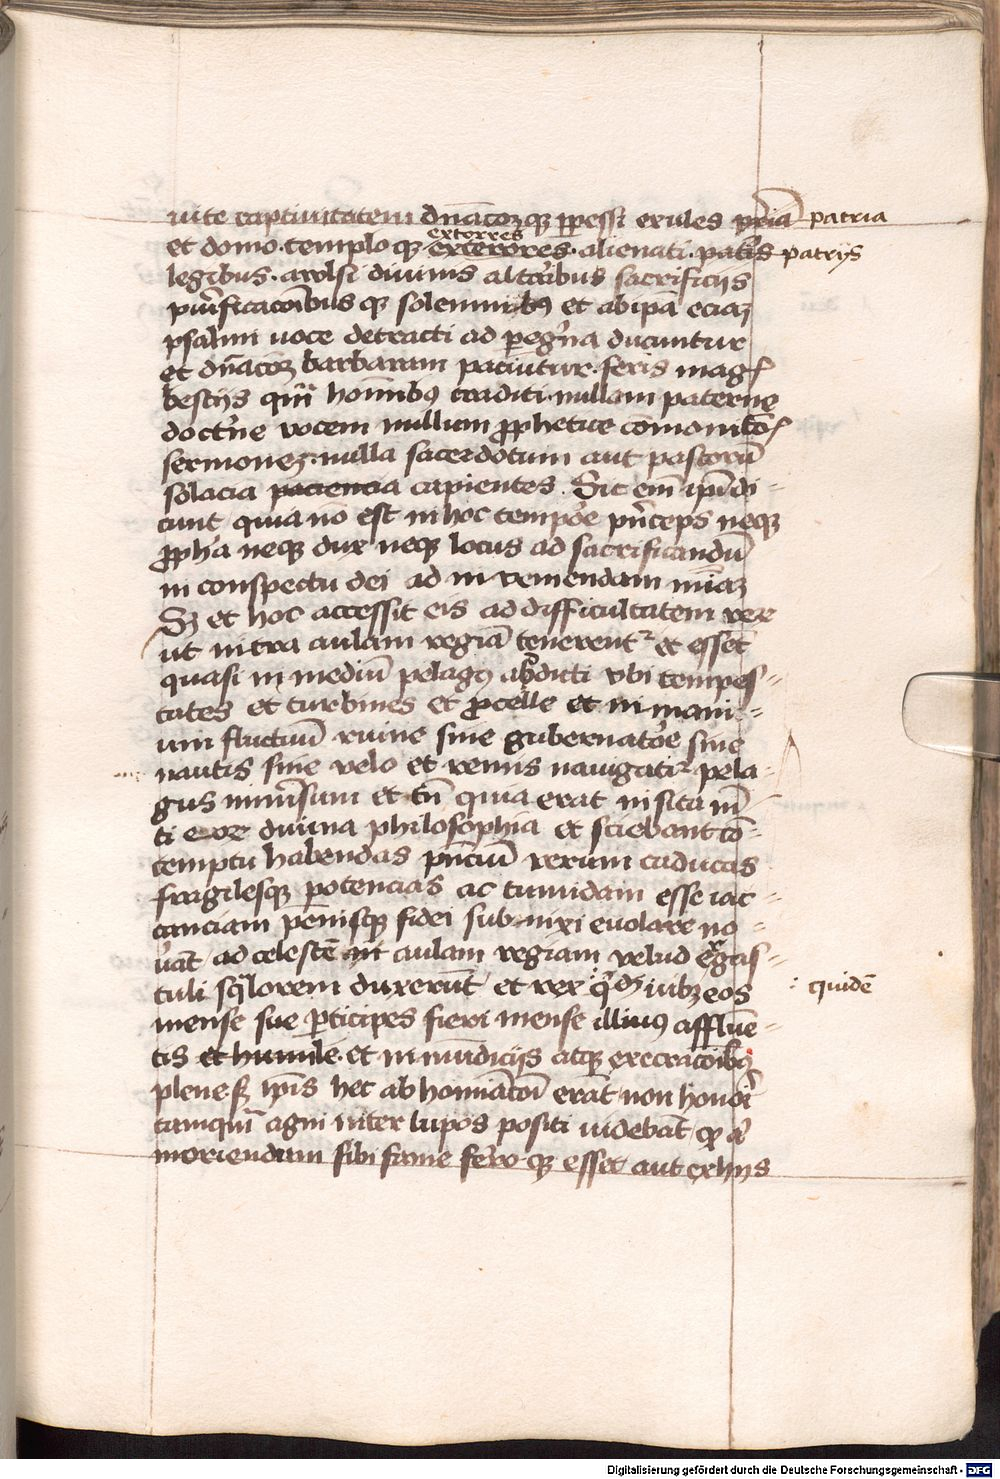 uite captiuitatem dn̄acōꝫ qꝫ ꝑpessi exules pr̄ia patria
et domo · templo qꝫ extorres exterores · alienati · patꝰis patrijs
legibus · auolsi diuinis altībus sacrificijs
purificacōibus qꝫ solemnibꝰ et ab ipā eciaꝫ
psalmi uoce detracti ad pegͥna ducuntur
et dn̄acōꝫ barbaram paciūtur · feris mag
bestijs qm̄ hom̄ibꝰ traditi · nullam paterne
doctͥne vocem nullum ꝓphetice cōmonicō
sermoneꝫ · nulla sacerdotum aut pastorū
solacia paciencia capientes . Sic em̄ ipi di
cunt quia nō est in hoc tempoꝛe pͥnceps neqꝫ
ꝓph̄a neqꝫ dux neqꝫ locus ad sacrificandū
in conspectu dei ad in ueniendam mīaꝫ
Sꝫ et hoc accessit eis ad difficultatem vere
ut intra aulam regiā tenerentᷣ et essēt
quasi in mediū pelagꝰ abducti vbi tempes
tates et turbines et ꝓcelle et in mani
um fluctuū ruine sine gubernatoꝛe sine
nautis sine velo et remis nauigatᷣ pela
gus inmēsum et tn̄ quia erat in sita mē
ti eoꝛ diuina philosophia et sciebant cō
temptu habendas pn̄ciū rerum caducas
fragilesqꝫ potencias ac tumidam esse iac
tanciam pennisqꝫ fidei sub nixi euolare no
uāt ad celestē aulam regiam velud ergas
tuli sqͣlorem duxerūt et rex qͥdꝫ iubꝫ eos quidē
mense sue ꝑticipes fieri mense illiuꝰ affluē
tis et humile · et in mūdicijs atqꝫ execracōibꝰ
plene sꝫ ip̄is hec abhominacōi erāt non honoͥ
tamqm̄ agni inter lupos positi uidebāt qꝫ aͥ
moriendum sibi fame fero qꝫ esset aut ex hijs
Digitalisierung gefördert durch die Deutsche Forschungsgemeinschaft - DFG